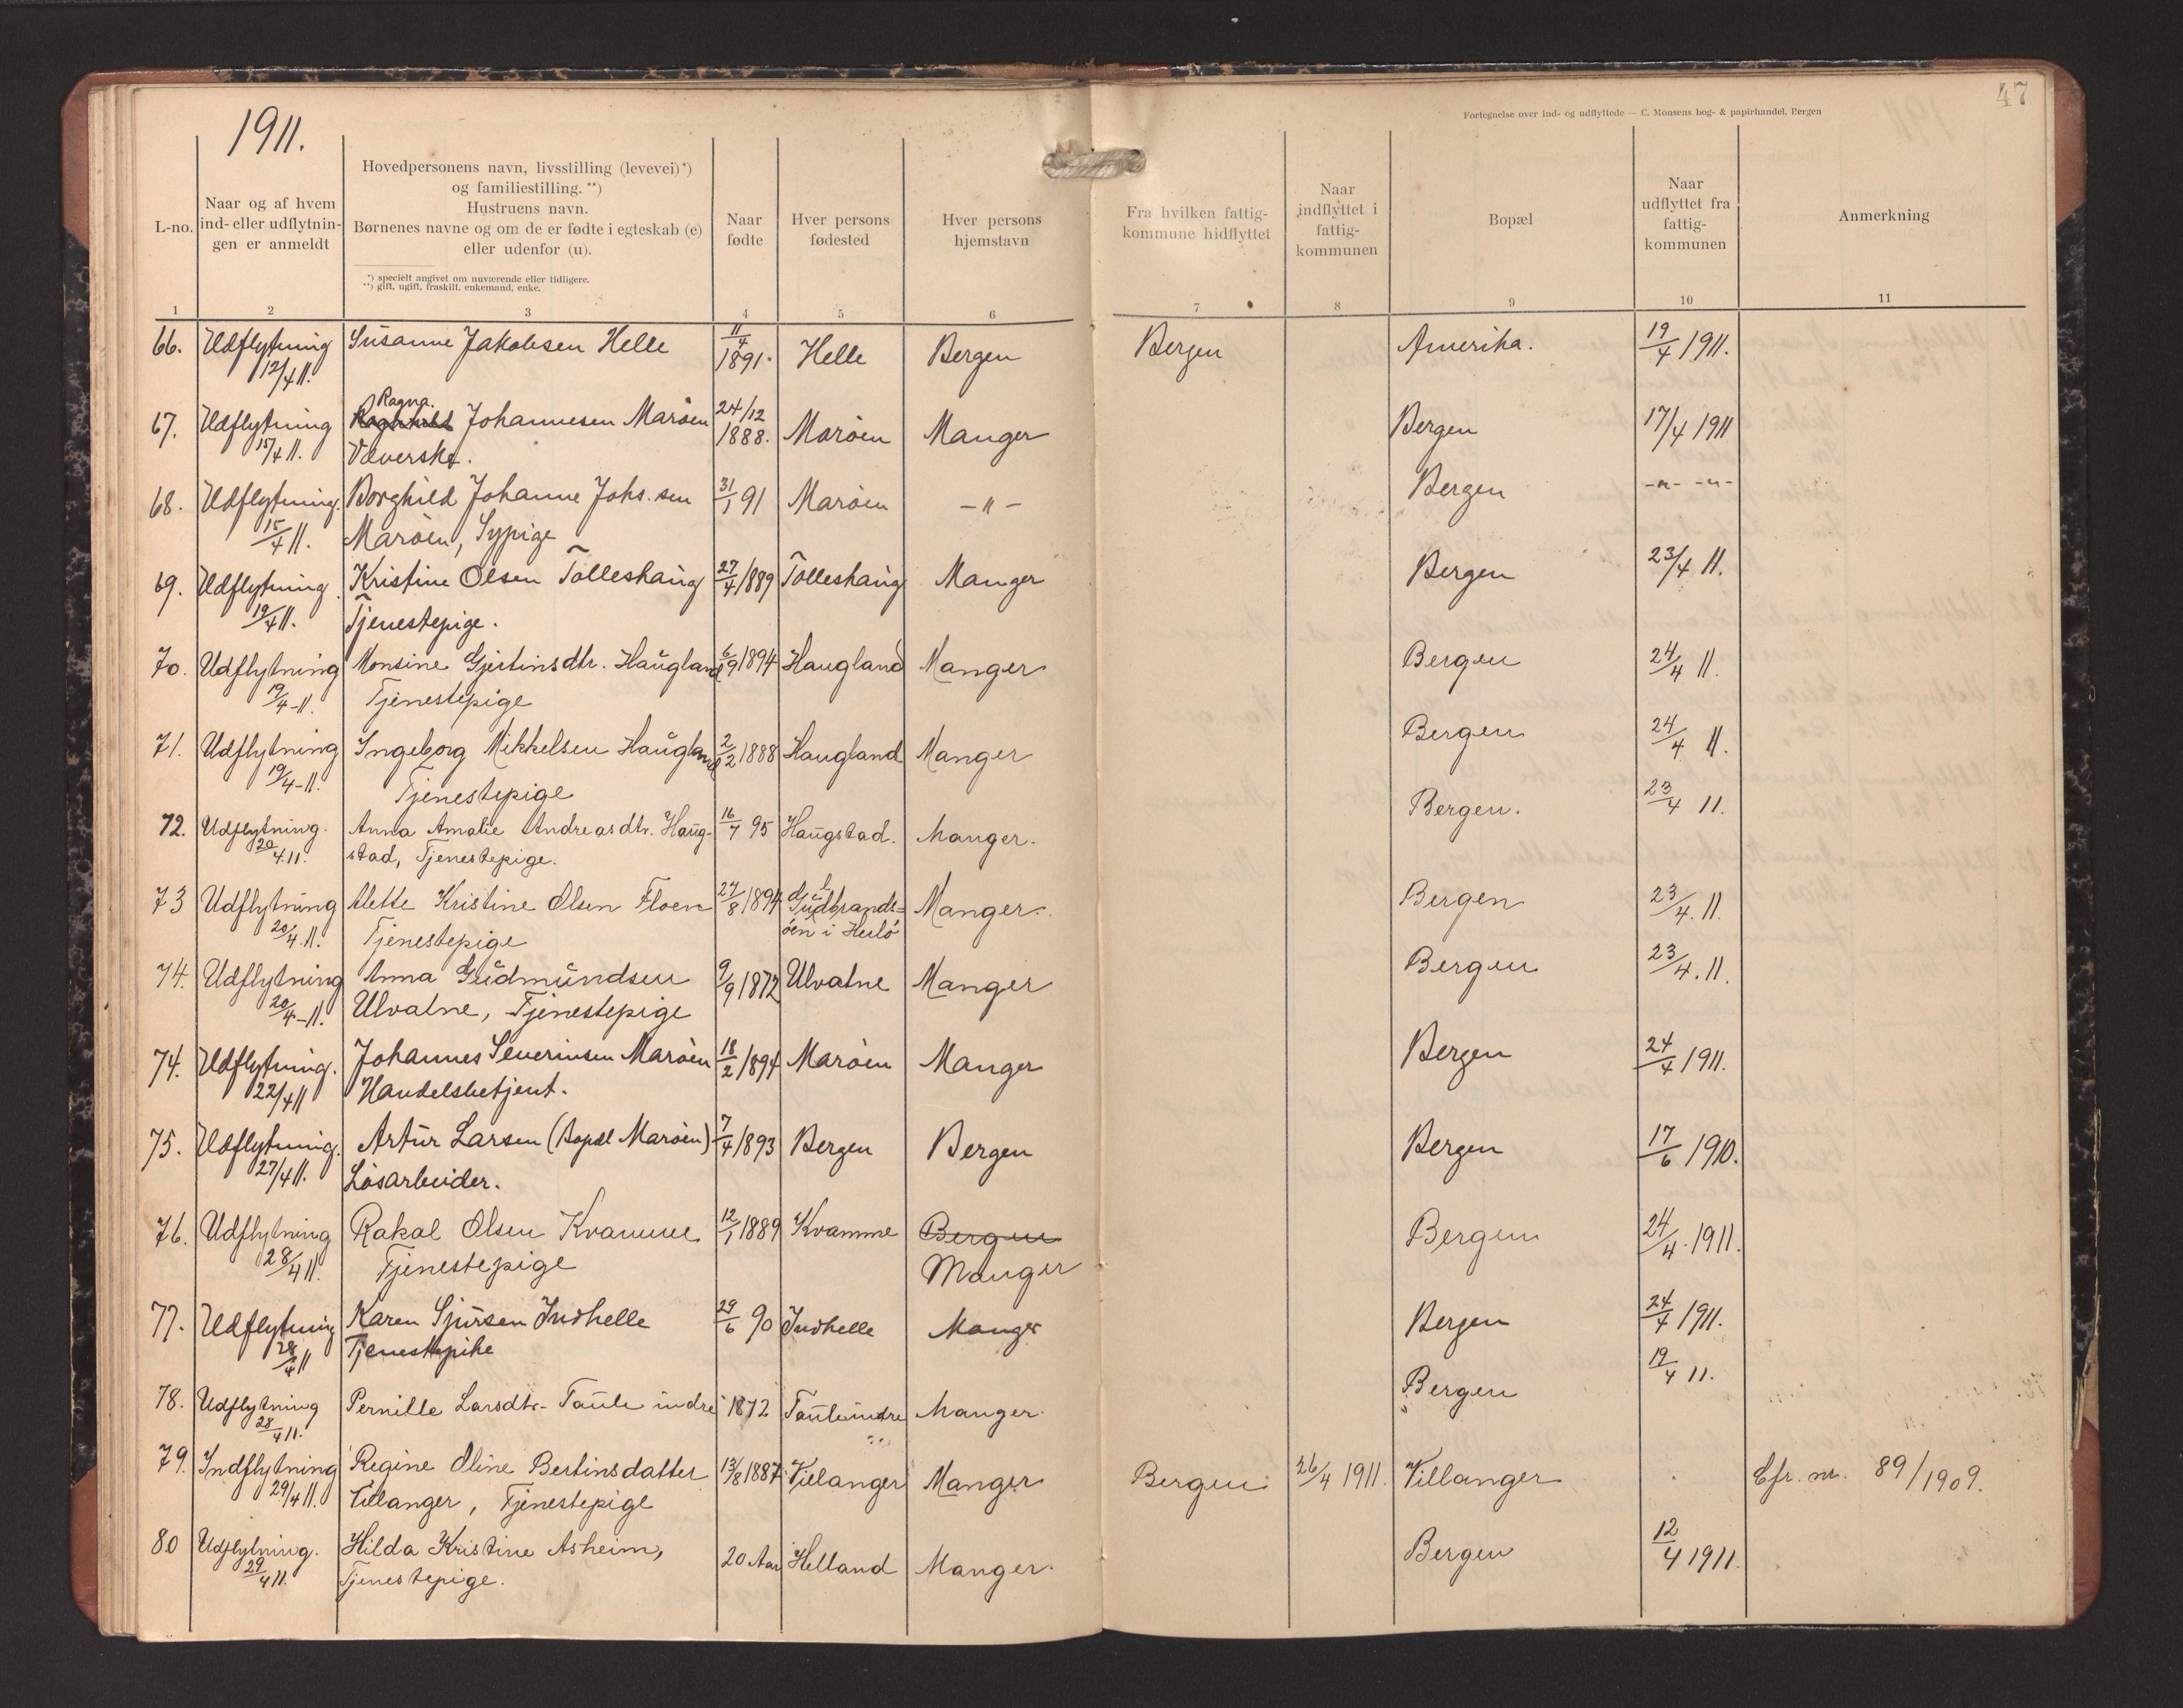 47
Fortegnelse over ind- og udflyttede — C. Monsens bog- & papirhandel, Bergen
1911.
L-no.
Naar og af hvem
ind- eller udflytnin-
gen er anmeldt
Hovedpersonens navn, livsstilling (levevei)*)
og familiestilling. **)
Hustruens navn.
Børnenes navne og om de er fødte i egteskab (e)
eller udenfor (u).
*) specielt angivet om nuværende eller tidligere.
**) gift, ugift, fraskilt, enkemand, enke.
Naar
fødte
Hver persons
fødested
Hver persons
hjemstavn
Fra hvilken fattig-
kommune hidflyttet
Naar
indflyttet i
fattig-
kommunen
Bopæl
Naar
udflyttet fra
fattig-
kommunen
Anmerkning
1 2 3 4 5 6 7 8 9 10 11
66. Udflytning Susanne Jakobsen Helle 11/4 1891. Helle Bergen Bergen Amerika. 19/4 1911.
12/4 11.
Ragna.
67. Udflytning Raghild Johannesen Marøen 24/12 1888. Marøen Manger Bergen 17/4 1911
15/4 11. Væverske.
68. Udflytning. Borghild Johanne Johs. sen 31/1 91 Marøen -"- Bergen -"- -"-
15/4 11. Marøen, Sypige
69. Udflytning. Kristine Olsen Tolleshaug 27/4 1889 Tolleshaug Manger Bergen 23/4 11.
19/4 11. Tjenestepige.
70. Udflytning Monsine Gjertinsdtr. Haugland 6/9 1894 Haugland Manger Bergen 24/4 11.
19/4-11. Tjenestepige
71. Udflytning Ingeborg Mikkelsen Haugland 2/12 1888 Haugland Manger Bergen 24/4 11.
19/4-11. Tjenestepige
72. Udflytning. Anna Amalie Andreasdtr. Haug- 16/7 95 Haugstad. Manger. Bergen. 23/4 11.
20/4.11. stad, Tjenestepige.
73 Udflytning Mette Kristine Olsen Floen 27/8 1894 Guldbrands= Manger. Bergen 23/4.11.
20/4.11. Tjenestepige øen i Herlø
74. Udflytning Anna Gudmundsen 9/9 1872 Ulvatne Manger Bergen 23/4.11.
20/4-11. Ulvatne, Tjenestepige
74. Udflytning. Johannes Severinsen Marøen 18/2 1894 Marøen Manger Bergen 24/4 1911.
22/4 11 Handelsbetjent.
75. Udflytning. Artur Larsen (Bopæl Marøen) 7/4 1893 Bergen Bergen Bergen 17/6 1910.
27/4 11. Løsarbeider.
76. Udflytning Rakal Olsen Kvamme 12/1 1889 Kvamme Bergen Bergen 24/4.1911.
28/4 11. Tjenestepige Manger
77. Udflytning Karen Sjursen Indhelle 29/6 90 Indhelle Manger Bergen 24/4 1911.
28/4 11 Tjenestepike
78. Udflytning Pernille Larsdtr. Taule indre 1872 Taule indre Manger. Bergen 19/4 11.
28/4 11.
79. Indflytning Regine Oline Bertinsdatter 13/8 1887 Villanger Manger Bergen 26/4 1911. Villanger Cfr. nr. 89/1909.
29/4 11. Villanger, Tjenestepige
80 Udflytning. Hilda Kristine Asheim, 20 Aar Helland Manger. Bergen 12/4 1911.
29/4 11. Tjenestepige.